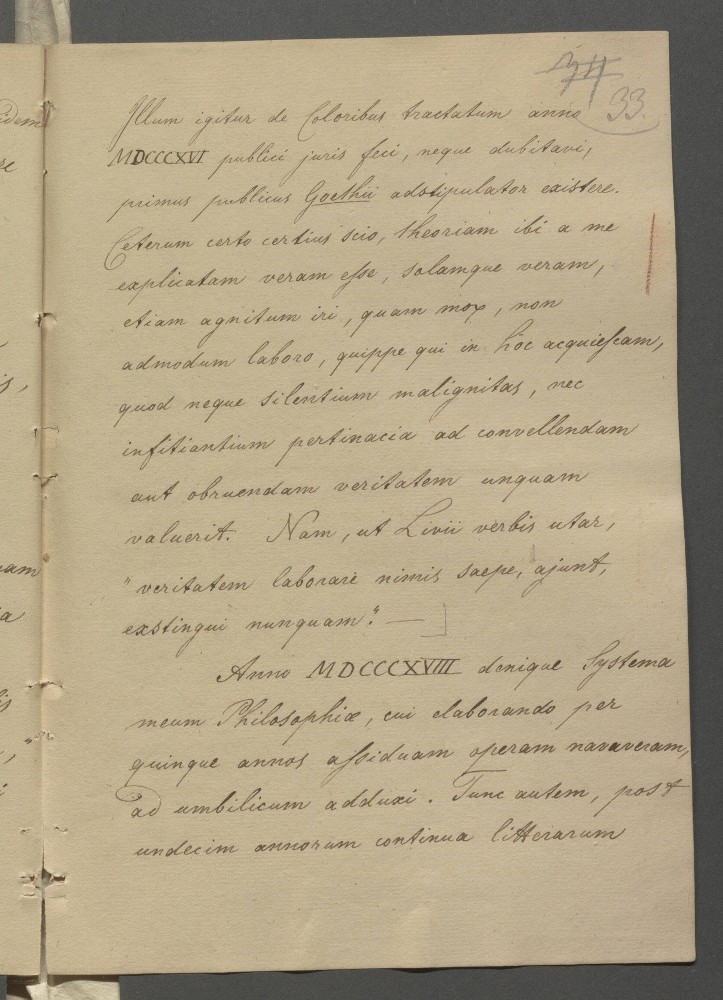 34
33.
Illum igitur de Coloribus tractatum anno
MDCCCXVI publici juris feci, neque dubitavi,
primus publicus Goethii adstipulator existere.
Ceterum certo certius scio, theoriam ibi a me
explicatam veram eſse, solamque veram,
etiam agnitum iri, quam mox, non
admodum laboro, quippe qui in hôc acquieſcam,
quod neque silentium malignitas, nec
infitiantium pertinacia ad convellendam
aut obruendam veritatem unquam
valuerit. Nam, ut Livii verbis utar,
"veritatem laborare nimis saepe, ajunt,
exstingui nunquam." — ]
Anno MDCCCXVIII denique Systema
meum Philosophiæ, cui elaborando per
quinque annos aſsiduam operam navaveram,
ad umbilicum adduxi. Tunc autem, post
undecim annorum continua litterarum